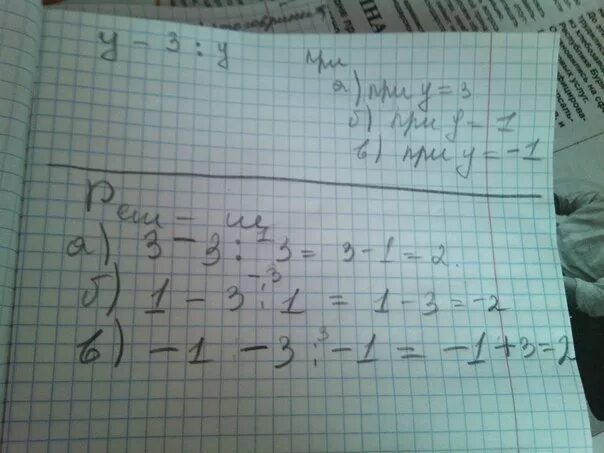 у - 3 : у при
а) при у = 3
б) при у = 1
в) при у = -1
Реш - ие
а) 3 - 3 : 3 = 3 - 1 = 2.
1
б) 1 - 3 : 1 = 1 - 3 = -2
3
в) -1 - 3 : -1 = -1 + 3 = 2
3